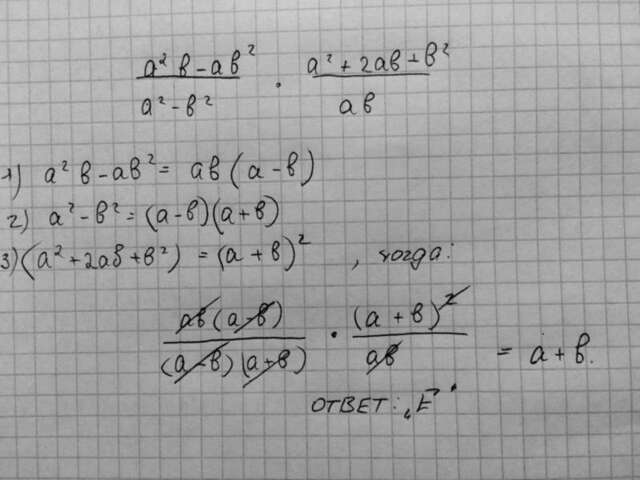 a² b - ab² / a² - b² · a² + 2ab + b² / ab
1) a² b - ab² = ab (a - b)
2) a² - b² = (a - b)(a + b)
3) (a² + 2ab + b²) = (a + b)² , тогда:
ab (a - b) / (a - b) (a + b) · (a + b)² / ab = a + b.
ОТВЕТ: „E"